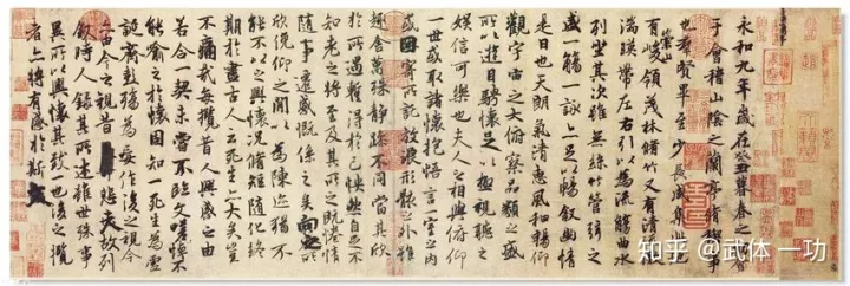 永和九年歲在癸丑暮春之初會
于會稽山陰之蘭亭脩禊事
也羣賢畢至少長咸集此地
有崇山峻領茂林脩竹又有清流激
湍暎帶左右引以為流觴曲水
列坐其次雖無絲竹管弦之
盛一觴一詠亦足以暢敘幽情
是日也天朗氣清惠風和暢仰
觀宇宙之大俯察品類之盛
所以遊目騁懷足以極視聽之
娛信可樂也夫人之相與俯仰
一世或取諸懷抱悟言一室之內
或因寄所託放浪形骸之外雖
趣舍萬殊靜躁不同當其欣
於所遇蹔得於己怏然自足不
知老之將至及其所之既惓情
隨事遷感慨係之矣向之所
欣俛仰之閒以為陳迹猶不
能不以之興懷況脩短隨化終
期於盡古人云死生亦大矣豈
不痛哉每攬昔人興感之由
若合一契未嘗不臨文嗟悼不
能喻之於懷固知一死生為虛
誕齊彭殤為妄作後之視今
亦由今之視昔悲夫故列
敘時人錄其所述雖世殊事
異所以興懷其致一也後之攬
者亦將有感於斯文
知乎 @武体一功